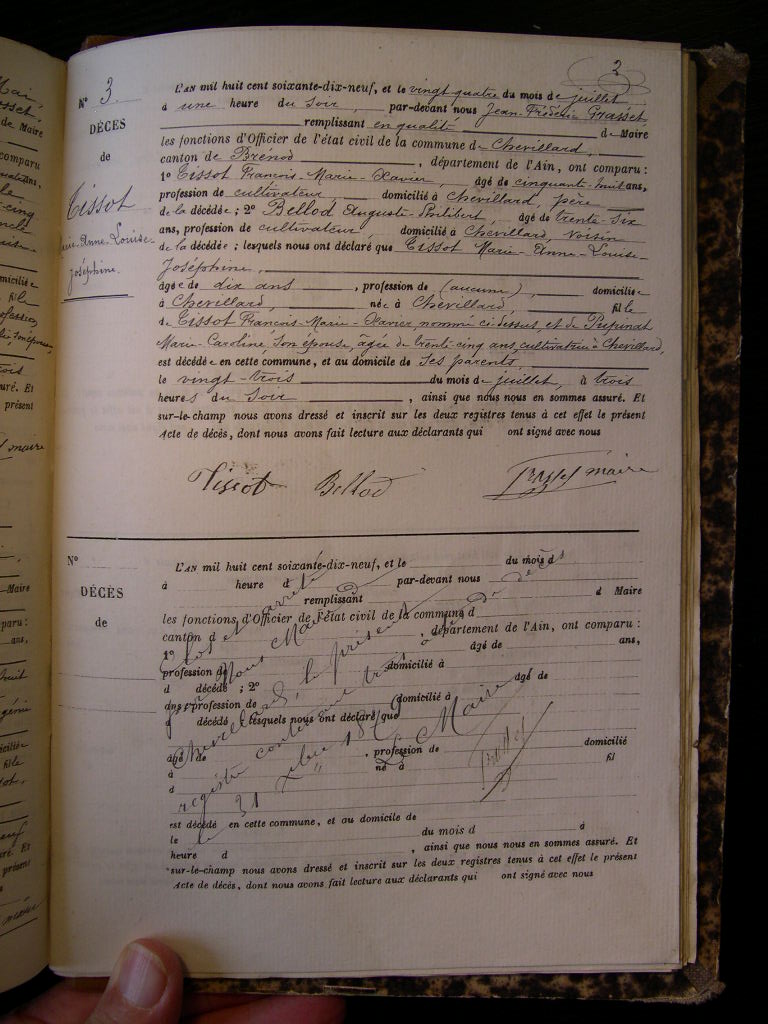 2
N° 3.
DÉCÈS
de
Tissot
Marie-Anne-Louise-
Joséphine.
L'AN mil huit cent soixante-dix-neuf, et le vingt quatre du mois de juillet
à une heure du soir, par-devant nous Jean-Frédéric Grasset
remplissant en qualité de Maire
les fonctions d'Officier de l'état civil de la commune de Chevillard,
canton de Brénod, département de l'Ain, ont comparu :
1° Tissot François-Marie-Xavier, âgé de cinquante-huit ans,
profession de cultivateur domicilié à Chevillard, père
de la décédée ; 2° Bellod Auguste-Philibert, âgé de trente-six
ans, profession de cultivateur, domicilié à Chevillard, voisin
de la décédée ; lesquels nous ont déclaré que Tissot Marie-Anne-Louise-
Joséphine,
âgée de dix ans, profession de (aucune), domiciliée
à Chevillard, née à Chevillard fille
de Tissot François-Marie-Xavier, nommé ci-dessus, et de Pupunat
Marie-Caroline son épouse, âgée de trente-cinq ans, cultivatrice à Chevillard,
est décédée en cette commune, et au domicile de ses parents
le vingt-trois du mois de juillet, à trois
heures du soir, ainsi que nous nous en sommes assuré. Et
sur-le-champ nous avons dressé et inscrit sur les deux registres tenus à cet effet le présent
Acte de décès, dont nous avons fait lecture aux déclarants qui ont signé avec nous
Tissot Bellod Grasset maire
N°
DÉCÈS
de
L'AN mil huit cent soixante-dix-neuf, et le du mois d
à heure d par-devant nous
remplissant d Maire
les fonctions d'Officier de l'état civil de la commune d
canton d , département de l'Ain, ont comparu :
1° âgé de ans,
profession de domicilié à
d décédé ; 2° âgé de
ans, profession de domicilié à
d décédé ; lesquels nous ont déclaré que
âgé de , profession de domicilié
à né à fil
d
est décédé en cette commune, et au domicile de
le du mois d à
heure d , ainsi que nous nous en sommes assuré. Et
sur-le-champ nous avons dressé et inscrit sur les deux registres tenus à cet effet le présent
Acte de décès, dont nous avons fait lecture aux déclarants qui ont signé avec nous
Clos et arrêté
par Nous Maire de
Chevillard, le présent
registre contenant trois actes de décès
le 31 Xbre 1879
Le Maire
Grasset